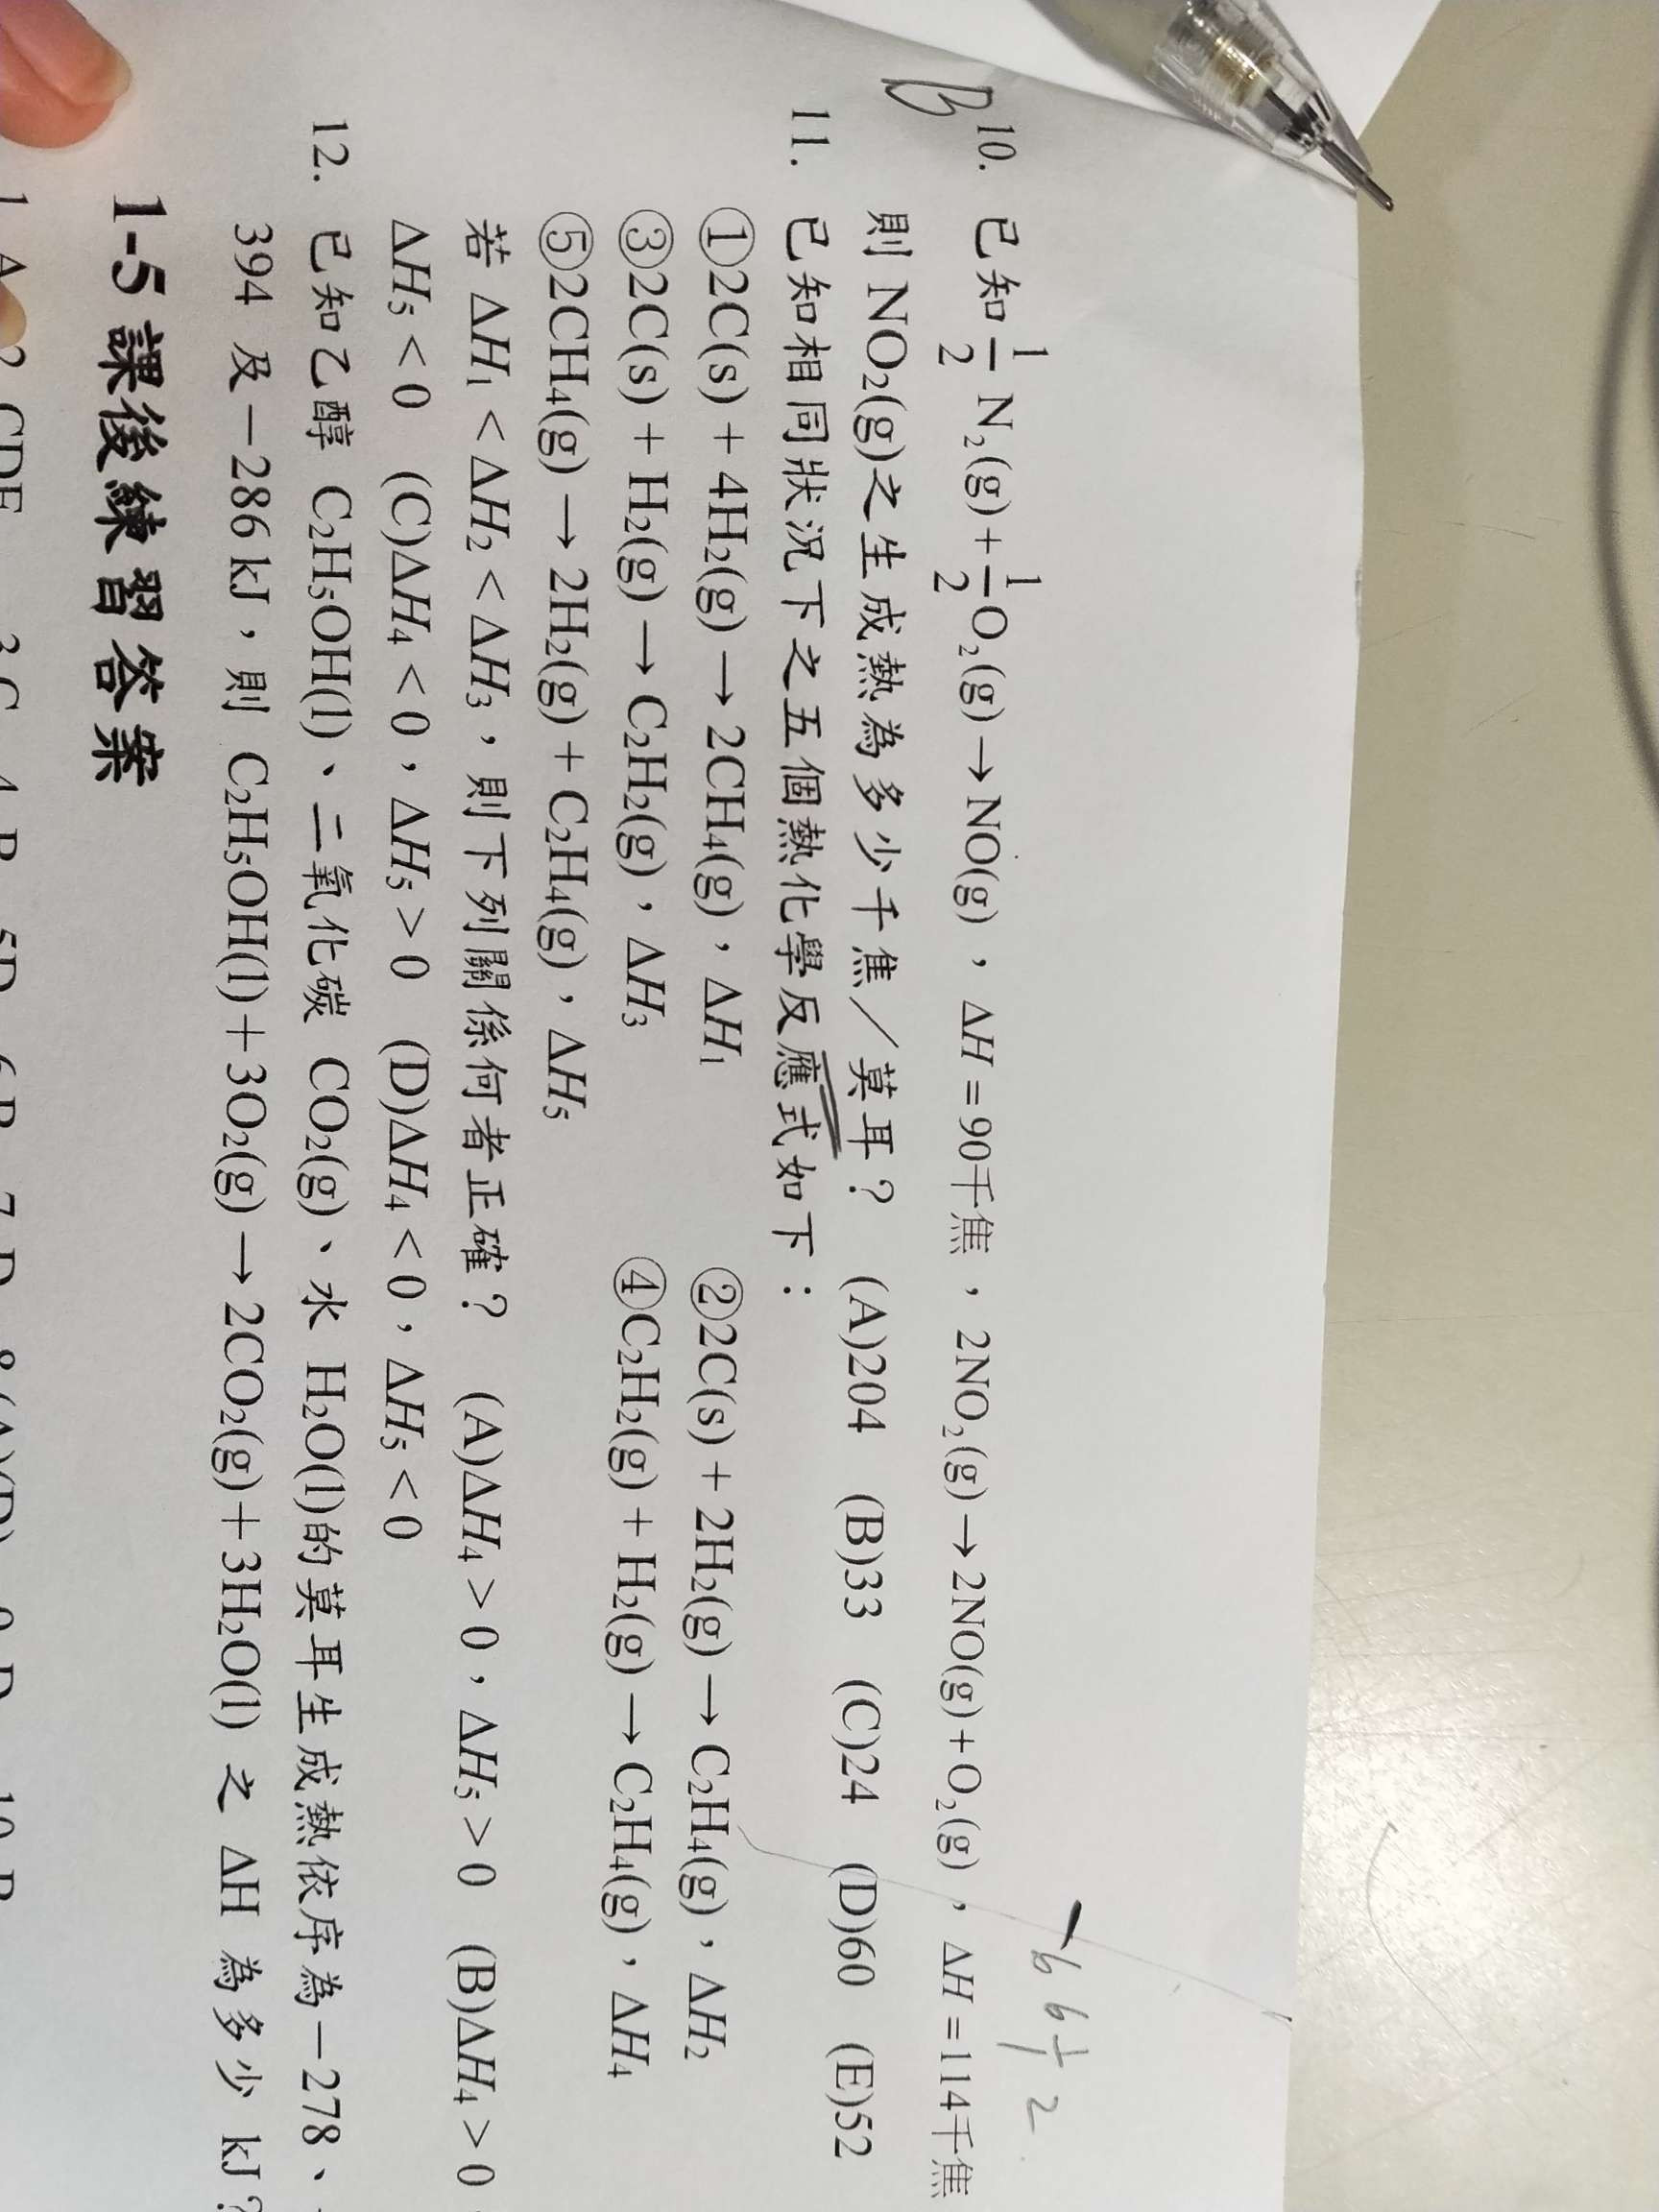 -66 1/2
B
10. 已知 1/2 N₂(g)+1/2 O₂(g)→NO(g),ΔH=90千焦,2NO₂(g)→2NO(g)+O₂(g),ΔH=114千焦
則 NO₂(g)之生成熱為多少千焦／莫耳? (A)204 (B)33 (C)24 (D)60 (E)52
11. 已知相同狀況下之五個熱化學反應式如下:
①2C(s)+4H₂(g)→2CH₄(g),ΔH₁ ②2C(s)+2H₂(g)→C₂H₄(g),ΔH₂
③2C(s)+H₂(g)→C₂H₂(g),ΔH₃ ④C₂H₂(g)+H₂(g)→C₂H₄(g),ΔH₄
⑤2CH₄(g)→2H₂(g)+C₂H₄(g),ΔH₅
若 ΔH₁<ΔH₂<ΔH₃,則下列關係何者正確? (A)ΔH₄>0,ΔH₅>0 (B)ΔH₄>0
ΔH₅<0 (C)ΔH₄<0,ΔH₅>0 (D)ΔH₄<0,ΔH₅<0
12. 已知乙醇 C₂H₅OH(l)、二氧化碳 CO₂(g)、水 H₂O(l)的莫耳生成熱依序為-278、
394 及-286 kJ,則 C₂H₅OH(l)+3O₂(g)→2CO₂(g)+3H₂O(l) 之 ΔH 為多少 kJ?
1-5 課後練習答案